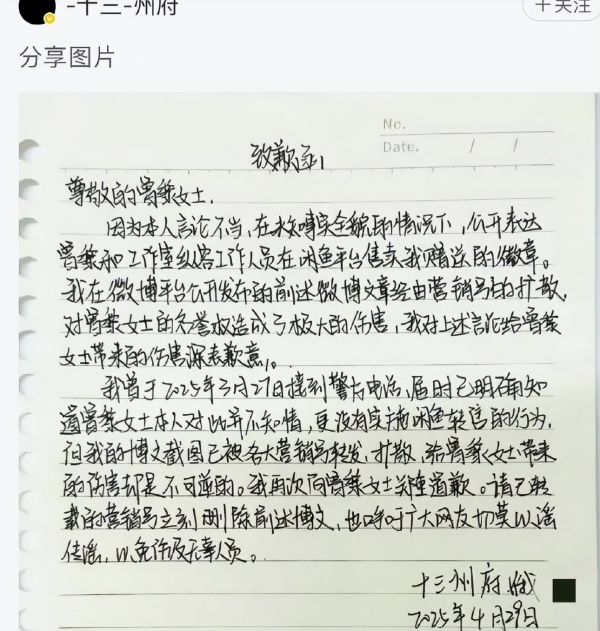 -十三-州府
十关注
分享图片
No.
Date. / /
致歉函
尊敬的曾黎女士:
因为本人言论不当,在未获得完全貌的情况下,公开表达
曾黎和工作室纵容工作人员在闲鱼平台售卖我赠送的徽章。
我在微博平台公开发布的前述微博文章经由营销号的扩散,
对曾黎女士的名誉权造成了极大的伤害,我对上述言论给曾黎
女士带来的伤害深表歉意。
我曾于2025年3月27日接到警方电话,届时已明确知
道曾黎女士本人对此并不知情,更没有实施闲鱼转售的行为,
但我的博文截图已被各大营销号转发、扩散,给曾黎女士带来
的伤害却是不可逆的。我再次向曾黎女士关注道歉。请已转
载的营销号立刻删除前述博文,也呼吁广大网友切莫以谣
传谣,以免伤及无辜人员。
十三州府
2025年4月29日